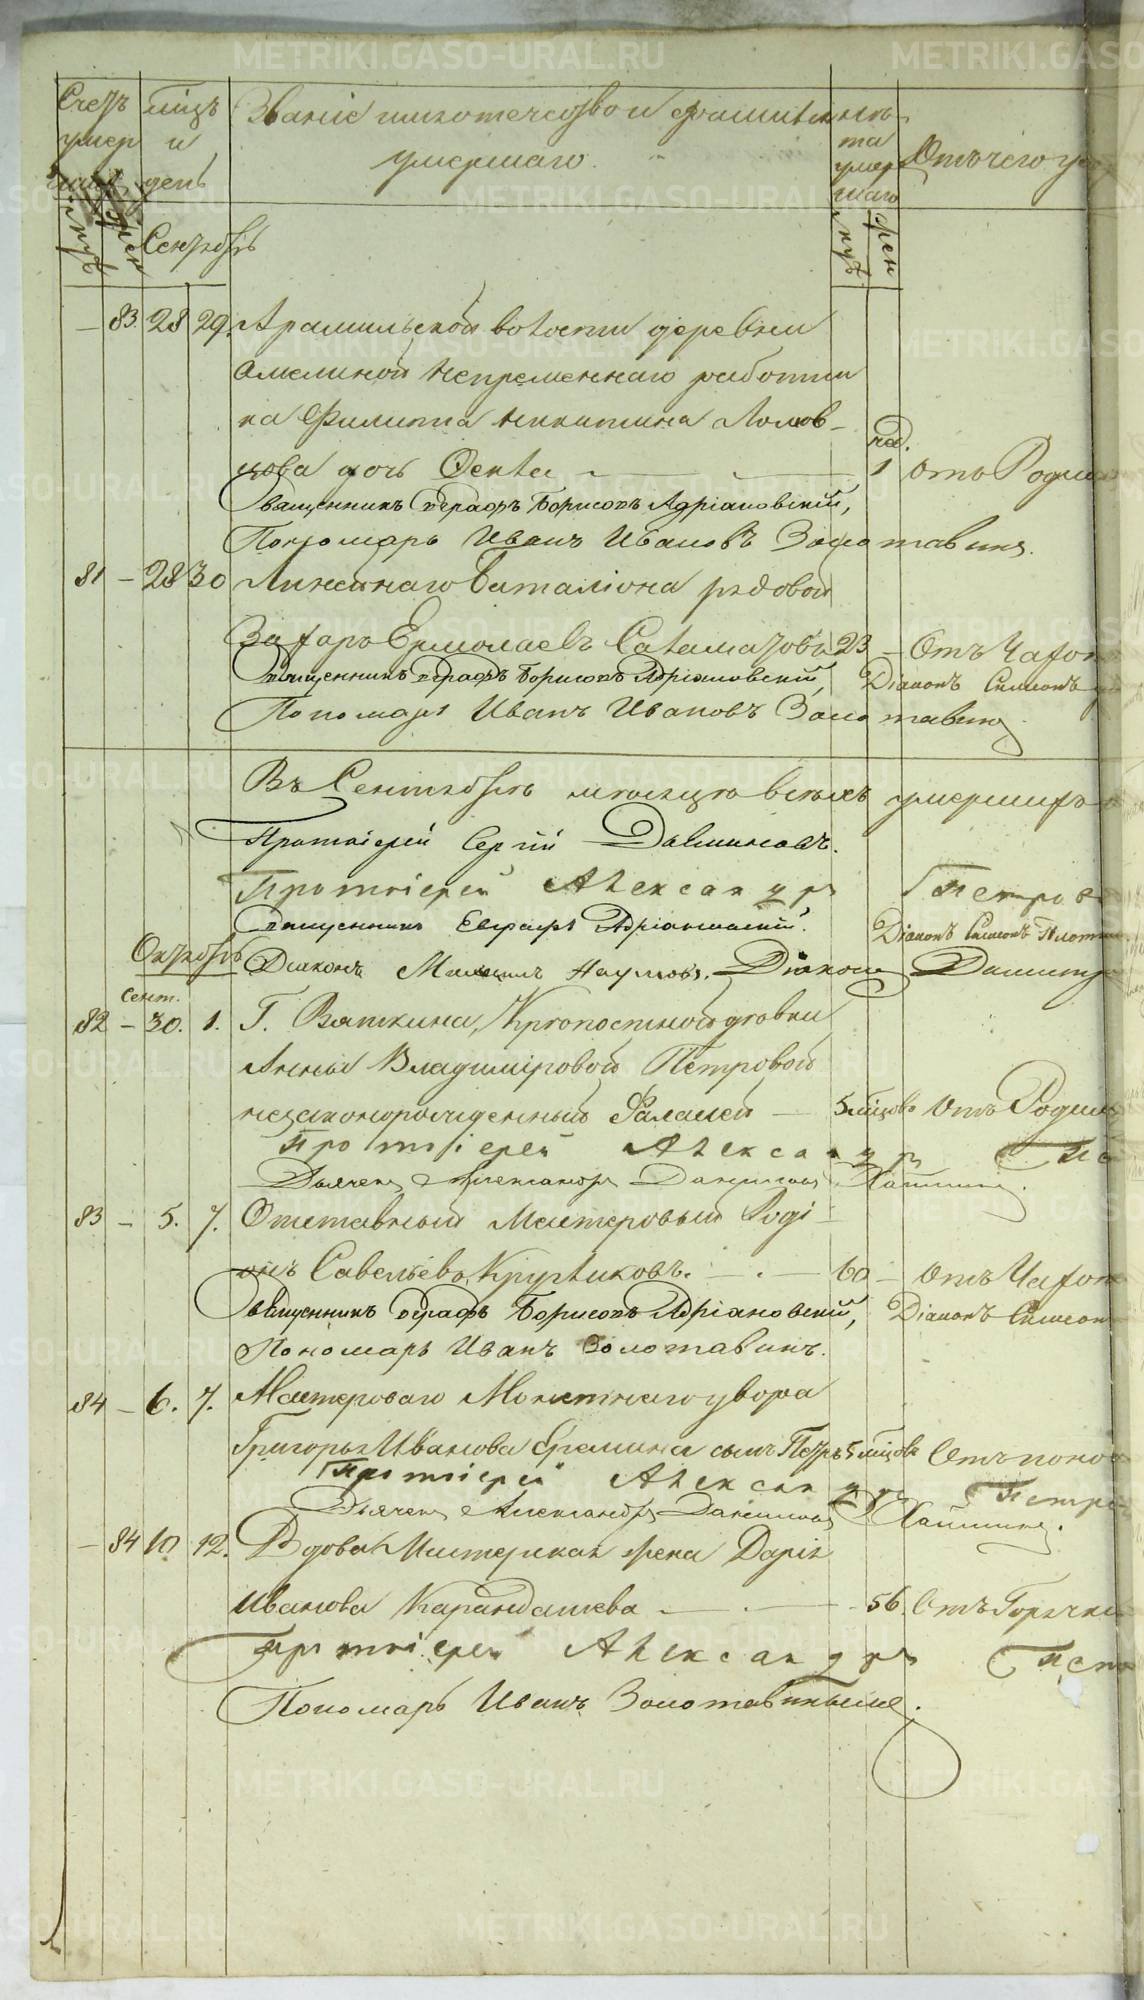 Счетъ умер шихъ
мѣсяцъ и день
Званіе имя отечество и фамилія
умершаго.
лѣта умер шаго
Отъ чего
муж. жен.
Сентябрь
муж. жен.
— 83. 28 29. Арамильской волости деревни
Амелиной непремѣннаго работни
ка Филипа Никитина Ломов-
цова дочь Ѳекла — 1 нед. отъ Родим
Священникъ Евграфъ Борисовъ Адріановскій,
Пономарь Иванъ Ивановъ Золотавинъ.
81 — 28 30 Линейнаго Баталіона рядовой
Захаръ Ермолаевъ Саламатовъ 23 — Отъ Чахот
Священникъ Евграфъ Борисовъ Адріановскій, Діаконъ Симеонъ
Пономарь Иванъ Ивановъ Золотавинъ
Въ Сентябрѣ мѣсяцѣ всѣхъ умершихъ
Протоіерей Сергій
Протоіерей Александръ Петров
Священникъ Евграфъ Адріановскій. Діаконъ Симеонъ Плотни
Октябрь Діаконъ Михаилъ Наумовъ. Діаконъ Димитр
Сент.
82 — 30. 1. Г. Вяткина, Крѣпостной дѣвки
Анны Владиміровой Петровой
незаконорожденный 5 мѣсцовъ Отъ Родим
Протоіерей Александръ Пе
Дьячекъ Александръ
83 — 5. 7. Отставный Мастеровый Роді-
онъ Савельевъ Кругликовъ. — 60 — Отъ Чахот
Священникъ Евграфъ Борисовъ Адріановскій, Діаконъ Симеон
Пономарь Иванъ Золотавинъ.
84 — 6. 7. Мастероваго Монетнаго двора
Григорья Иванова Еремина сынъ Петръ 5 мѣсцовъ Отъ поно
Протоіерей Александръ Петро
Дьячекъ Александръ
— 84 10 12. Вдова Мастерская жена Дарья
Иванова Карандашева — 56. Отъ Горячки
Протоіерей Александръ Петр
Пономарь Иванъ Золотавинъ.
METRIKI.GASO-URAL.RU